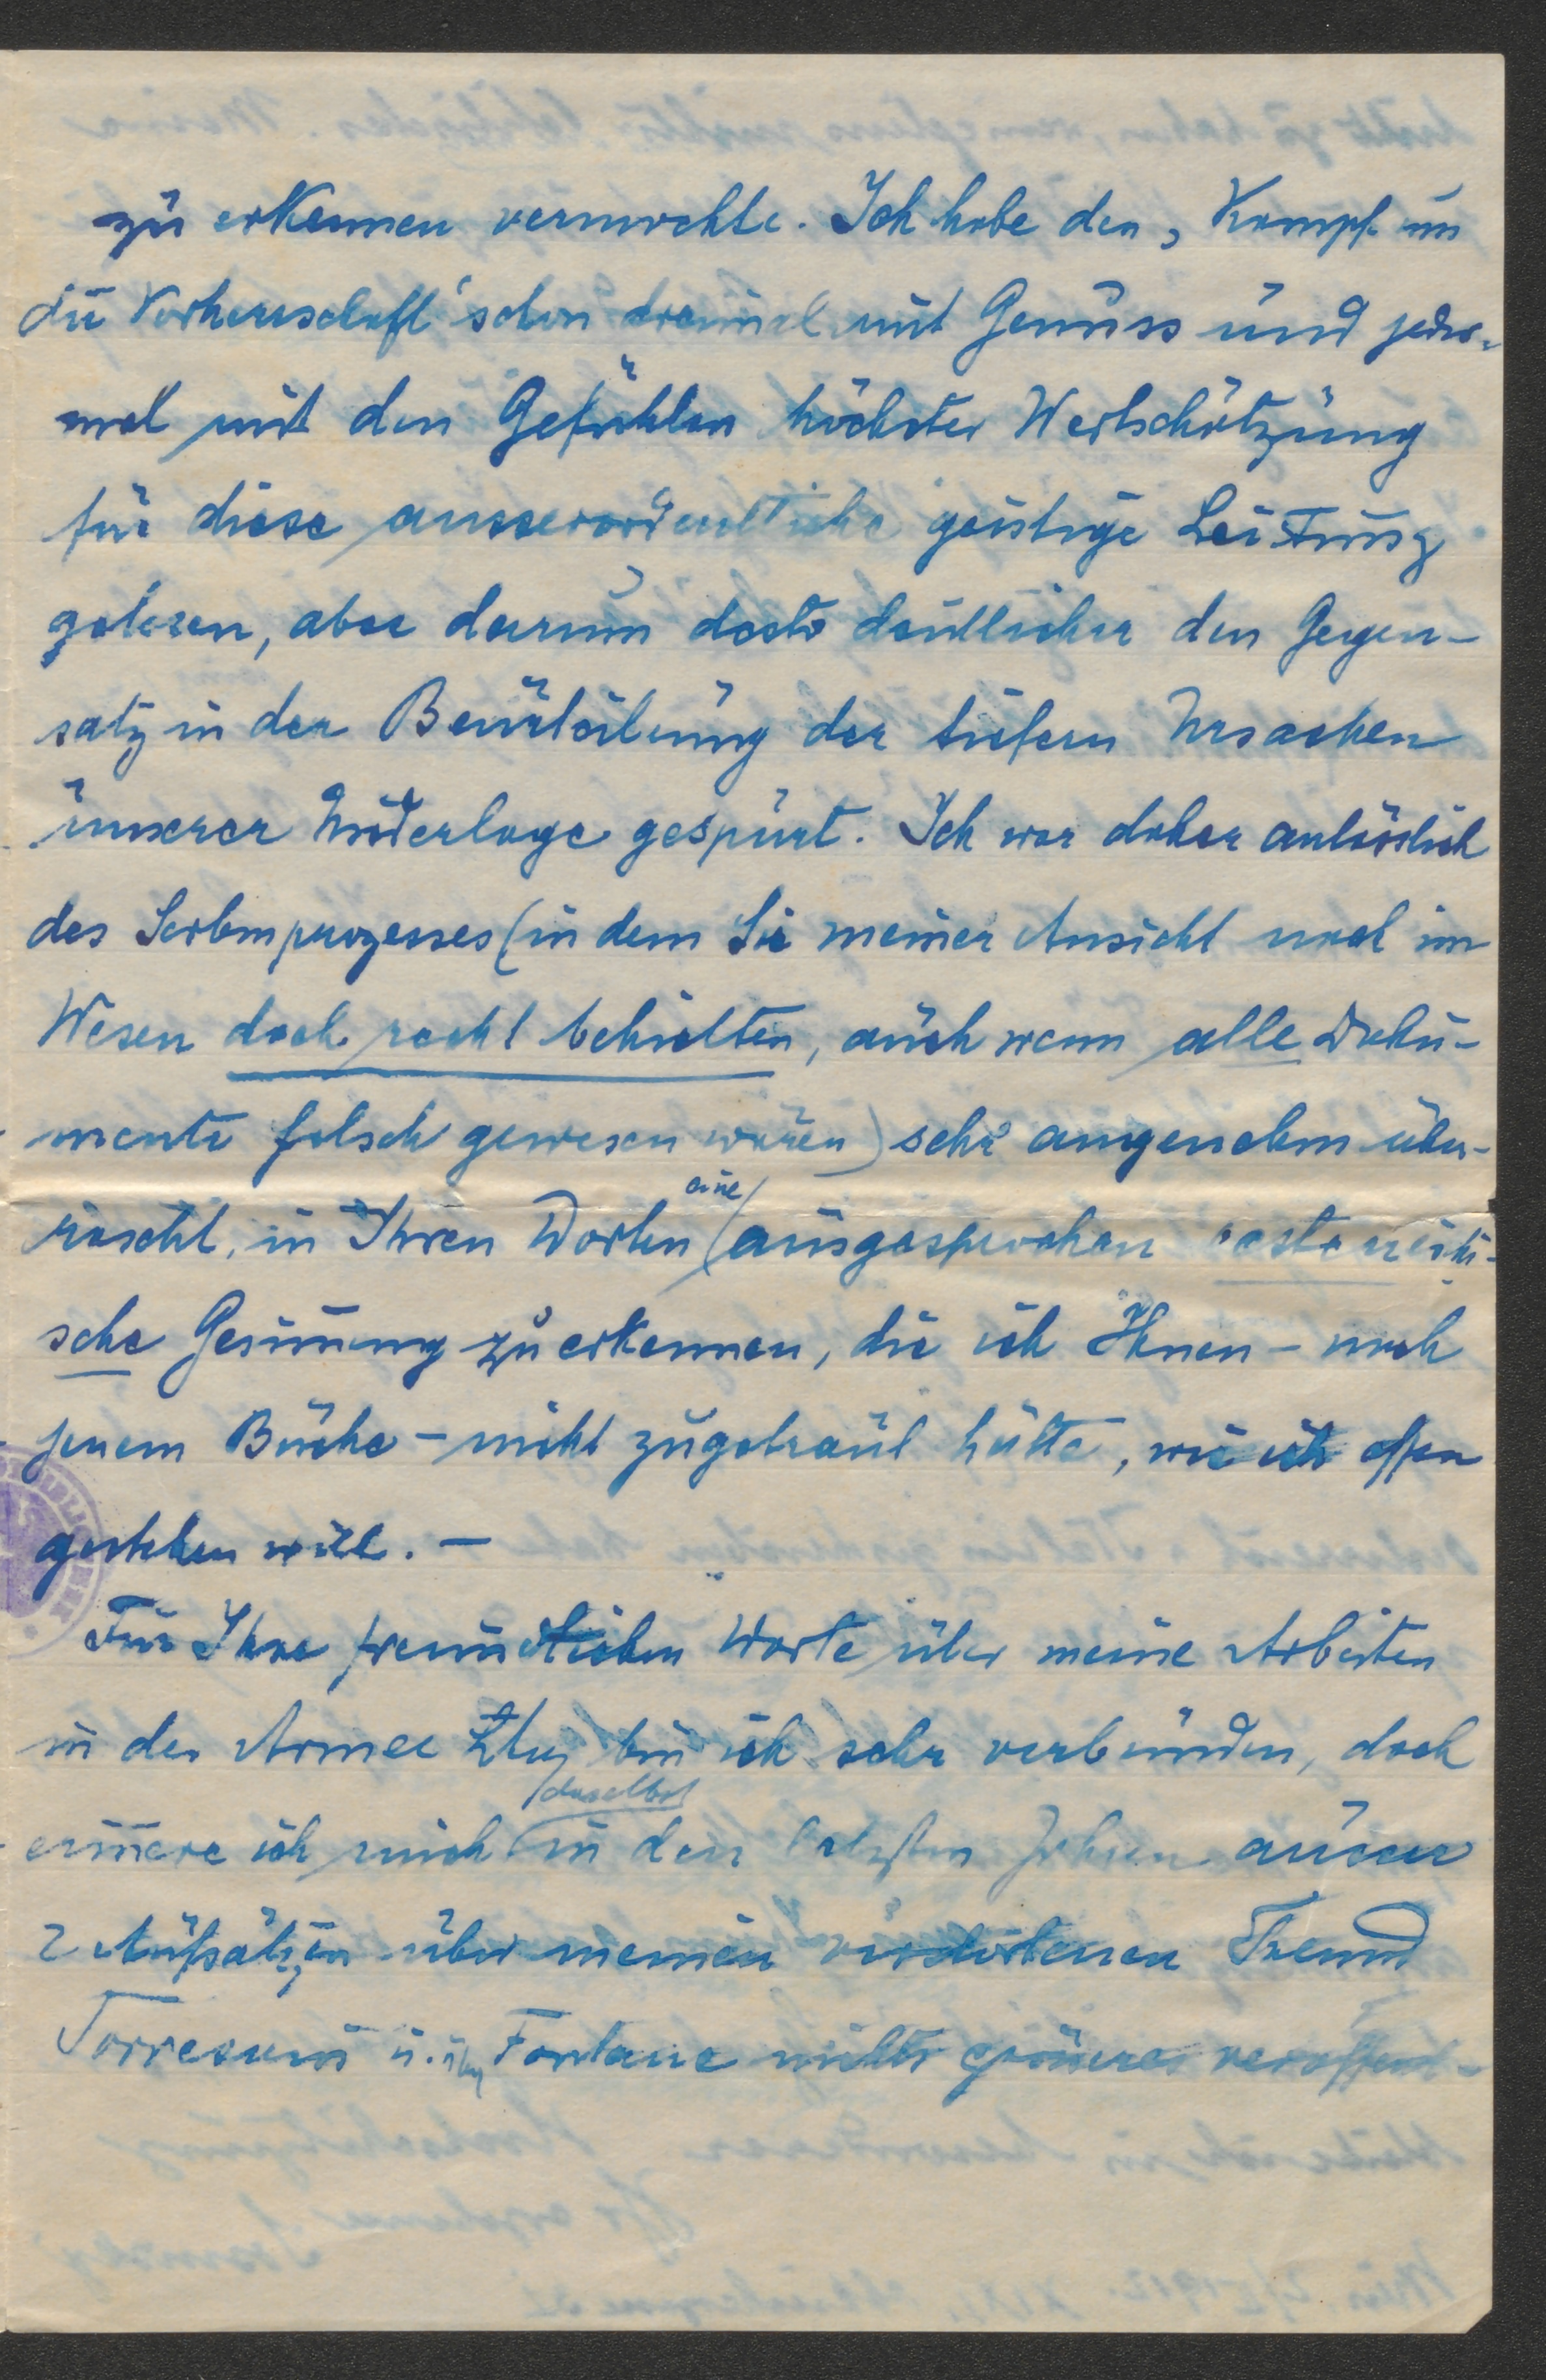 zu erkennen vermochte. Ich habe den „Kampf um
die Vorherrschaft“ schon dreimal mit Genuss und jedes-
mal mit den Gefühlen höchster Wertschätzung
für diese ausserordentliche geistige Leistung
gelesen, aber darum desto deutlicher den Gegen-
satz in der Beurteilung der tiefern Ursachen
unserer Niederlage gespürt. Ich war daher anlässlich
des Serbenprozesses (in dem Sie meiner Ansicht nach im
Wesen doch recht behielten, auch wenn alle Doku-
mente falsch gewesen wären) sehr angenehm über-
rascht, in Ihren Worten eine ausgesprochen oesterreichi-
sche Gesinnung zu erkennen, die ich Ihnen - nach
jenem Buche - nicht zugetraut hätte, wie ich offen
gestehen will. -
Für Ihre freundlichen Worte über meine Arbeiten
in der Armee Ztg bin ich sehr verbunden, doch
erinnere ich mich daselbst in den letzten Jahren ausser
2 Aufsätzen über meinen verstorbenen Freund
Torresani u. über Fontane nichts grösseres veröffent-